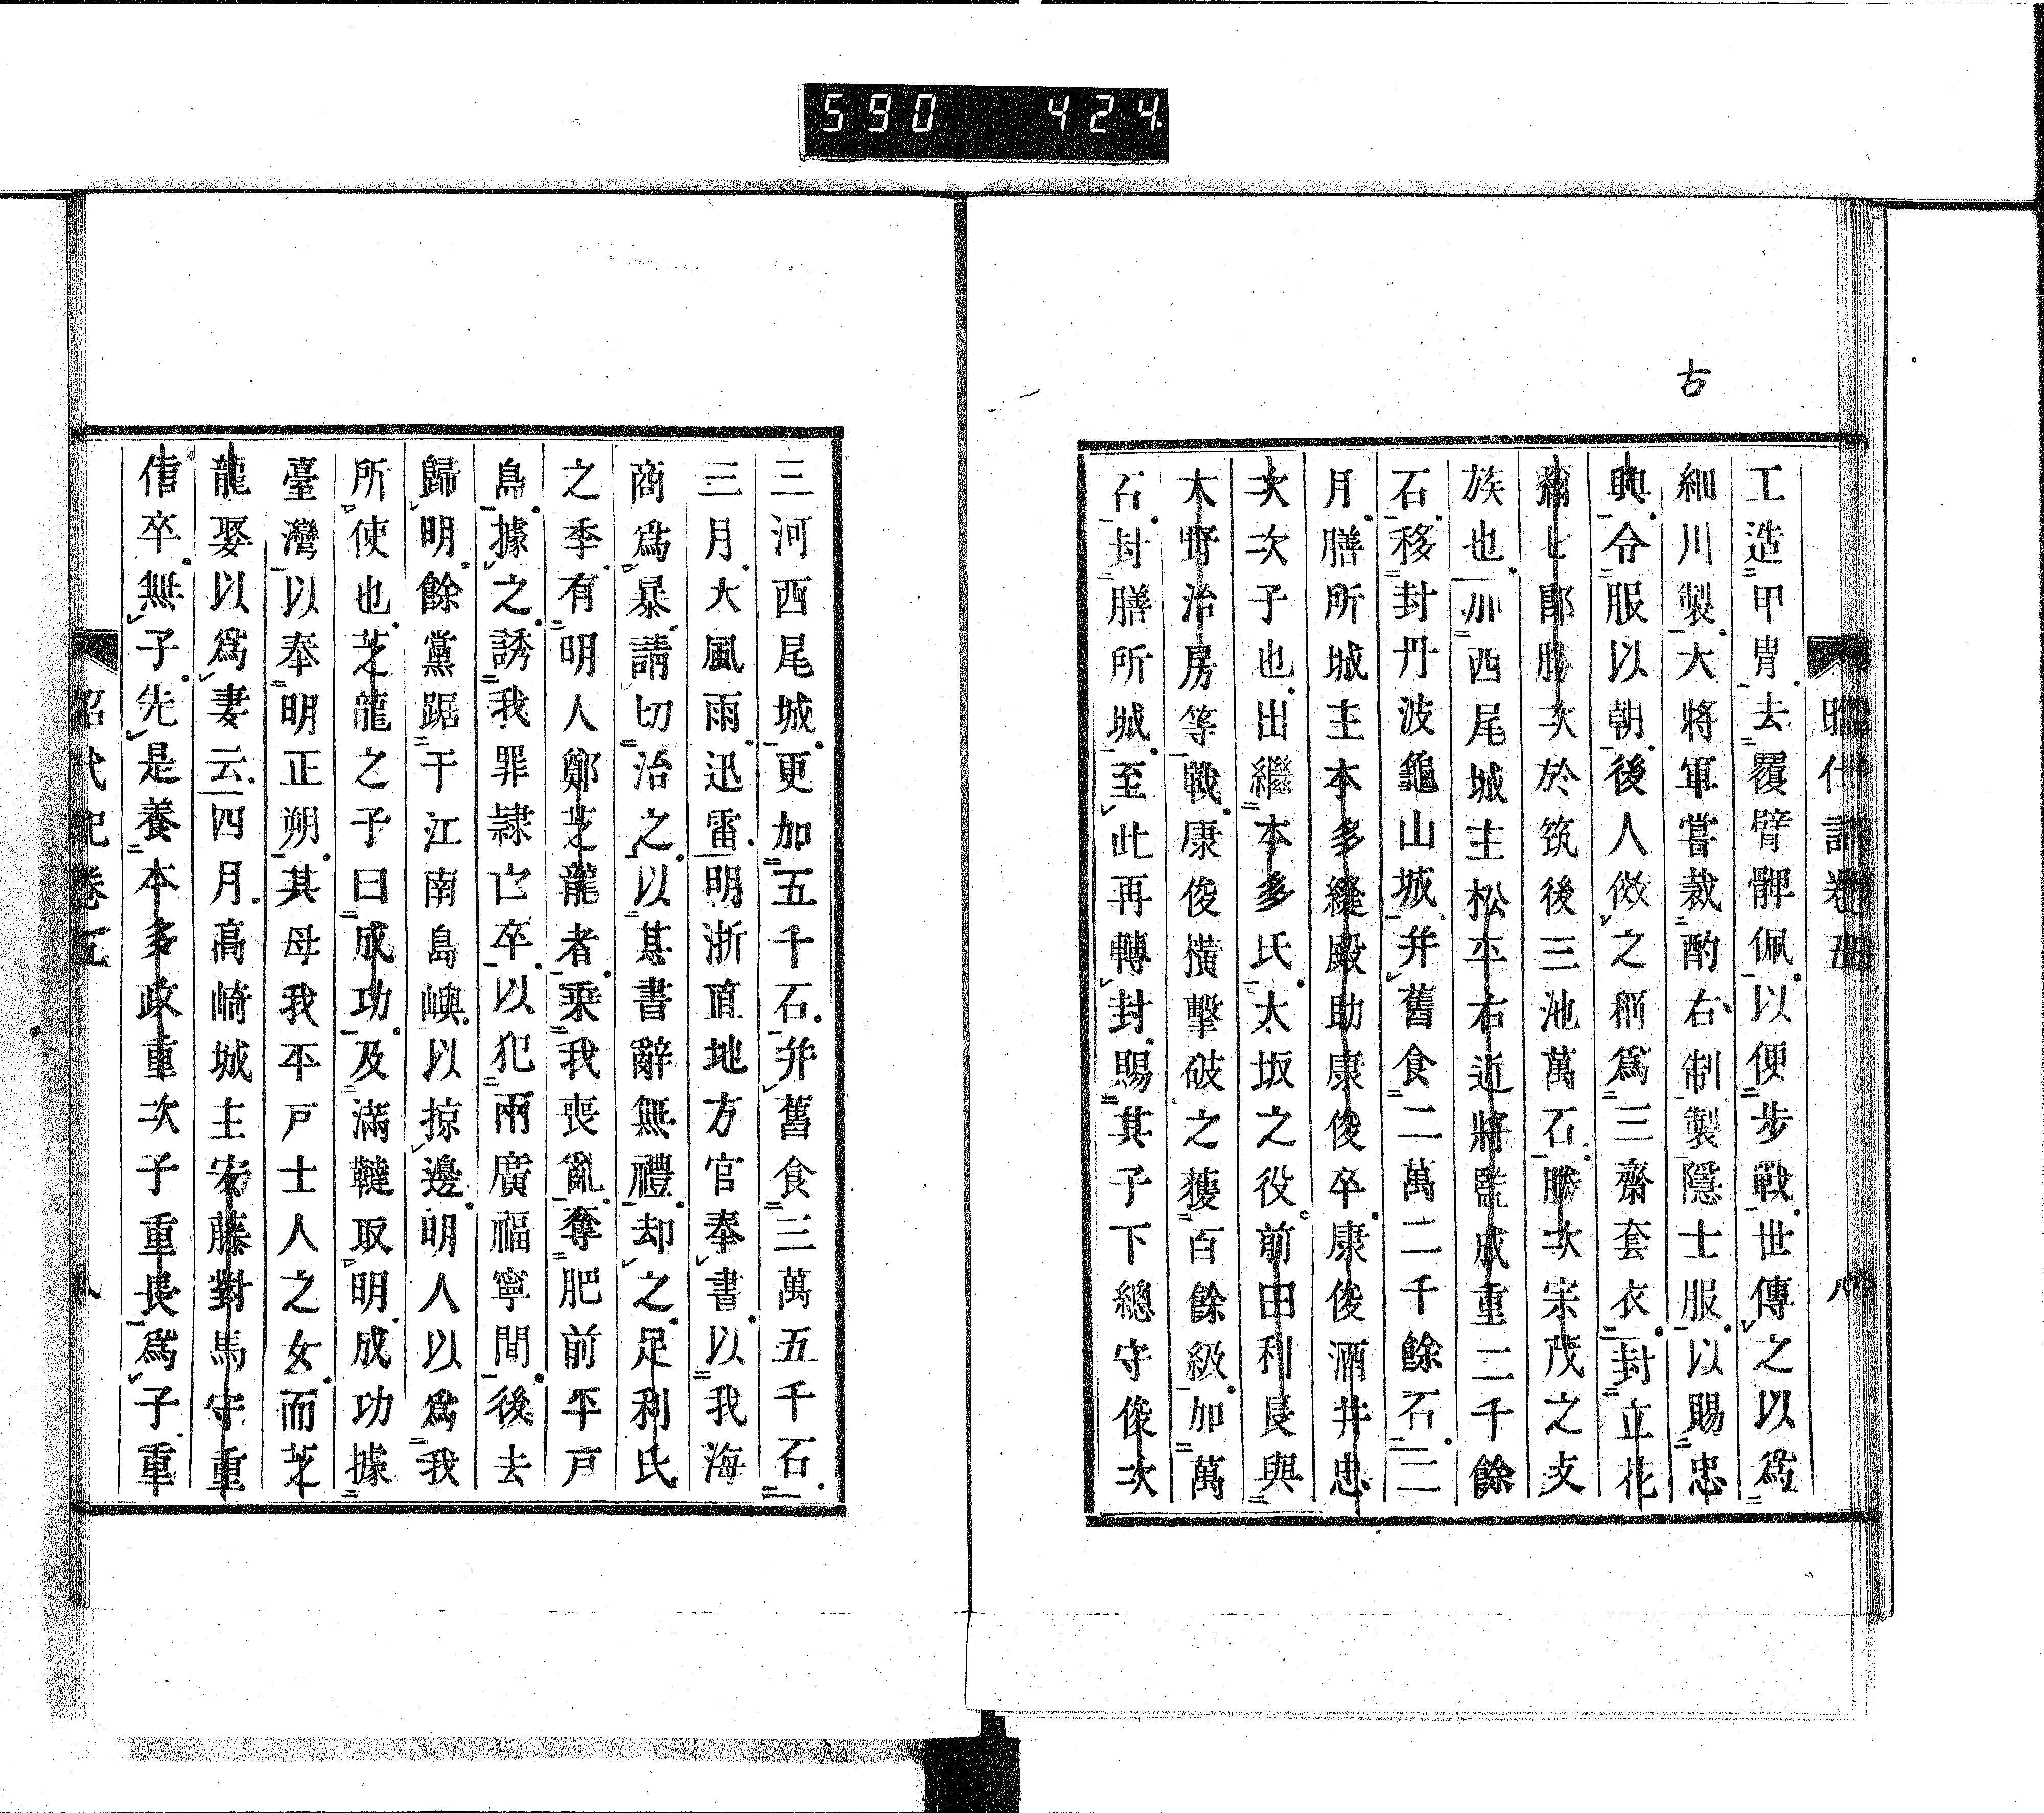 590 424
古
工造甲冑去覆臂髀佩以便步戰世傳之以爲
細川製大將軍嘗裁酌右制製隱士服以賜忠
興令服以朝後人傚之稱爲三齋套衣封立花
彌七郎勝次於筑後三池萬石勝次宗茂之支
族也加西尾城主松平右近將監成重二千餘
石移封丹波龜山城幷舊食二萬二千餘石二
月膳所城主本多縫殿助康俊卒康俊酒井忠
次次子也出繼本多氏大坂之役前田利長與
大野治房等戰康俊橫擊破之獲百餘級加萬
石封膳所城至此再轉封賜其子下總守俊次
昭代記卷五 八
三河西尾城更加五千石幷舊食三萬五千石
三月大風雨迅雷明浙直地方官奉書以我海
商爲暴請切治之以其書辭無禮却之足利氏
之季有明人鄭芝龍者乘我喪亂奪肥前平戸
島據之誘我罪隷亡卒以犯兩廣福寧間後去
歸明餘黨踞于江南島嶼以掠邊明人以爲我
所使也芝龍之子曰成功及滿韃取明成功據
臺灣以奉明正朔其母我平戸士人之女而芝
龍娶以爲妻云四月高崎城主安藤對馬守重
信卒無子先是養本多政重次子重長爲子重
昭代記卷五 八